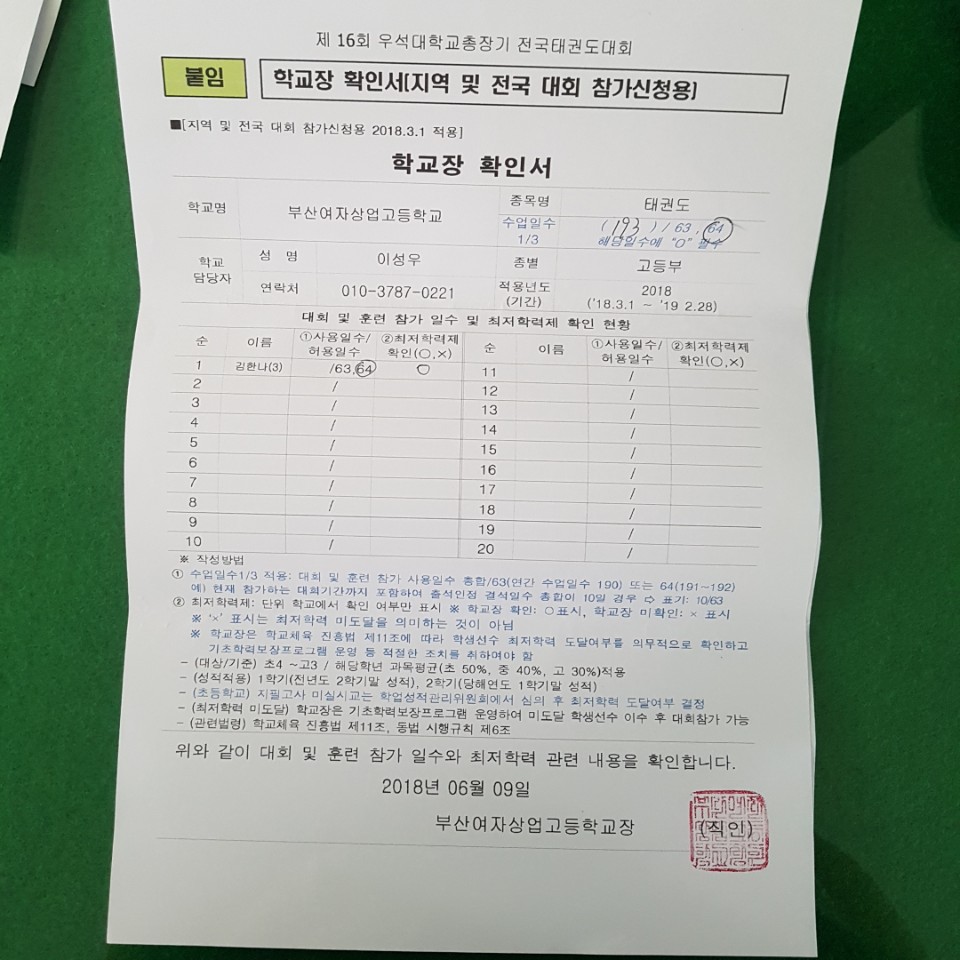 제 16회 우석대학교총장기 전국태권도대회
붙임 학교장 확인서[지역 및 전국 대회 참가신청용]
■[지역 및 전국 대회 참가신청용 2018.3.1 적용]
학교장 확인서
학교명 부산여자상업고등학교 종목명 태권도
수업일수 1/3 (193)/63, 64
해당일수에 "O" 필수
학교 담당자 성 명 이성우 종별 고등부
연락처 010-3787-0221 적용년도 (기간) 2018 ('18.3.1 ~ '19 2.28)
대회 및 훈련 참가 일수 및 최저학력제 확인 현황
순 이름 ①사용일수/허용일수 ②최저학력제 확인(○,×) 순 이름 ①사용일수/허용일수 ②최저학력제 확인(○,×)
1 김한나(3) /63,64 ○ 11 /
2 / 12 /
3 / 13 /
4 / 14 /
5 / 15 /
6 / 16 /
7 / 17 /
8 / 18 /
9 / 19 /
10 / 20 /
※ 작성방법
① 수업일수1/3 적용: 대회 및 훈련 참가 사용일수 총합/63(연간 수업일수 190) 또는 64(191~192)
예) 현재 참가하는 대회기간까지 포함하여 출석인정 결석일수 총합이 10일 경우 ⇨ 표기: 10/63
② 최저학력제: 단위 학교에서 확인 여부만 표시 ※ 학교장 확인: ○표시, 학교장 미확인: × 표시
※ '×' 표시는 최저학력 미도달을 의미하는 것이 아님
※ 학교장은 학교체육 진흥법 제11조에 따라 학생선수 최저학력 도달여부를 의무적으로 확인하고
기초학력보장프로그램 운영 등 적절한 조치를 취하여야 함
- (대상/기준) 초4 ~고3 / 해당학년 과목평균(초 50%, 중 40%, 고 30%)적용
- (성적적용) 1학기(전년도 2학기말 성적), 2학기(당해연도 1학기말 성적)
- (초등학교) 지필고사 미실시교는 학업성적관리위원회에서 심의 후 최저학력 도달여부 결정
- (최저학력 미도달) 학교장은 기초학력보장프로그램 운영하여 미도달 학생선수 이수 후 대회참가 가능
- (관련법령) 학교체육 진흥법 제11조, 동법 시행규칙 제6조
위와 같이 대회 및 훈련 참가 일수와 최저학력 관련 내용을 확인합니다.
2018년 06월 09일
부산여자상업고등학교장 (직인)